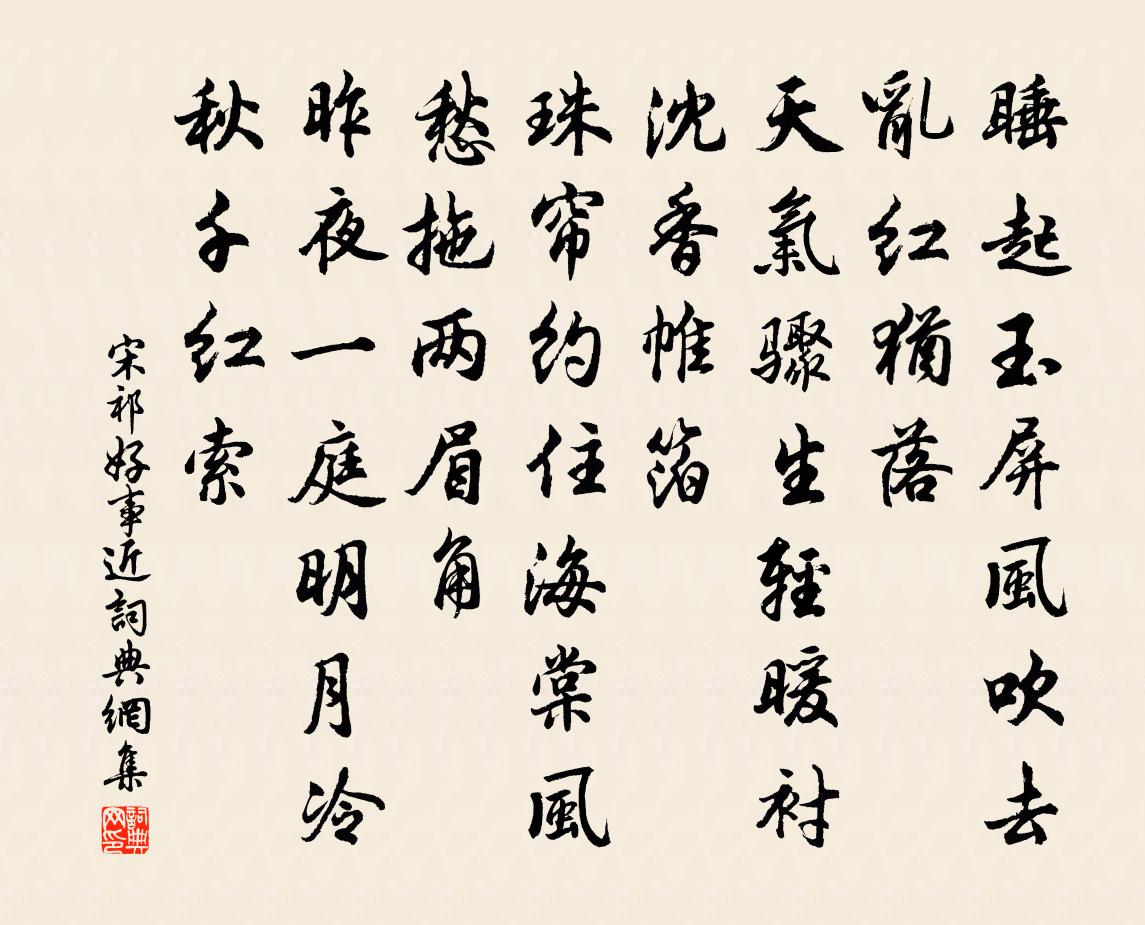 睡起玉屏風吹去
亂红猶落
天氣驟生輕暖衬
沈香帷箔
珠帘约住海棠風
愁拖两眉角
昨夜一庭明月冷
秋千红索
宋祁好事近詞典網集
詞典网印